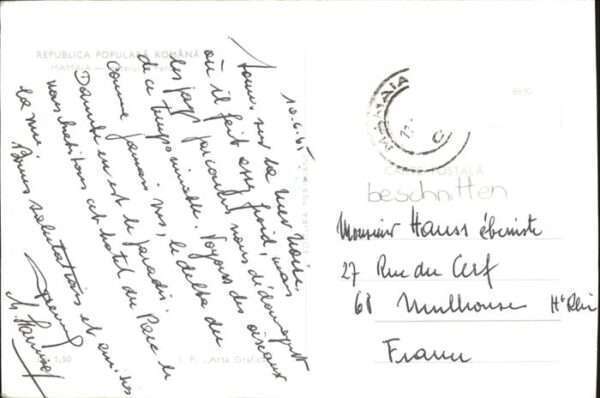 REPUBLICA POPULARĂ ROMÂNĂ
MAMAIA
10.6.65
Sommes sur la mer Noire
où il fait assez froid, mais
les pays parcourus nous dédommagent
de ce temps minable. Voyons des oiseaux
comme jamais vus, le delta du
Danube en est le paradis.
nous habitons cet hotel du Parc
la mer.
Bonnes salutations et amitiés
MAMAIA
CARTE POSTALĂ
beschnitten
Monsieur Hauss ébéniste
27 Rue du Cerf
68 Mulhouse Ht Rhin
France
1,50
Arta Grafică